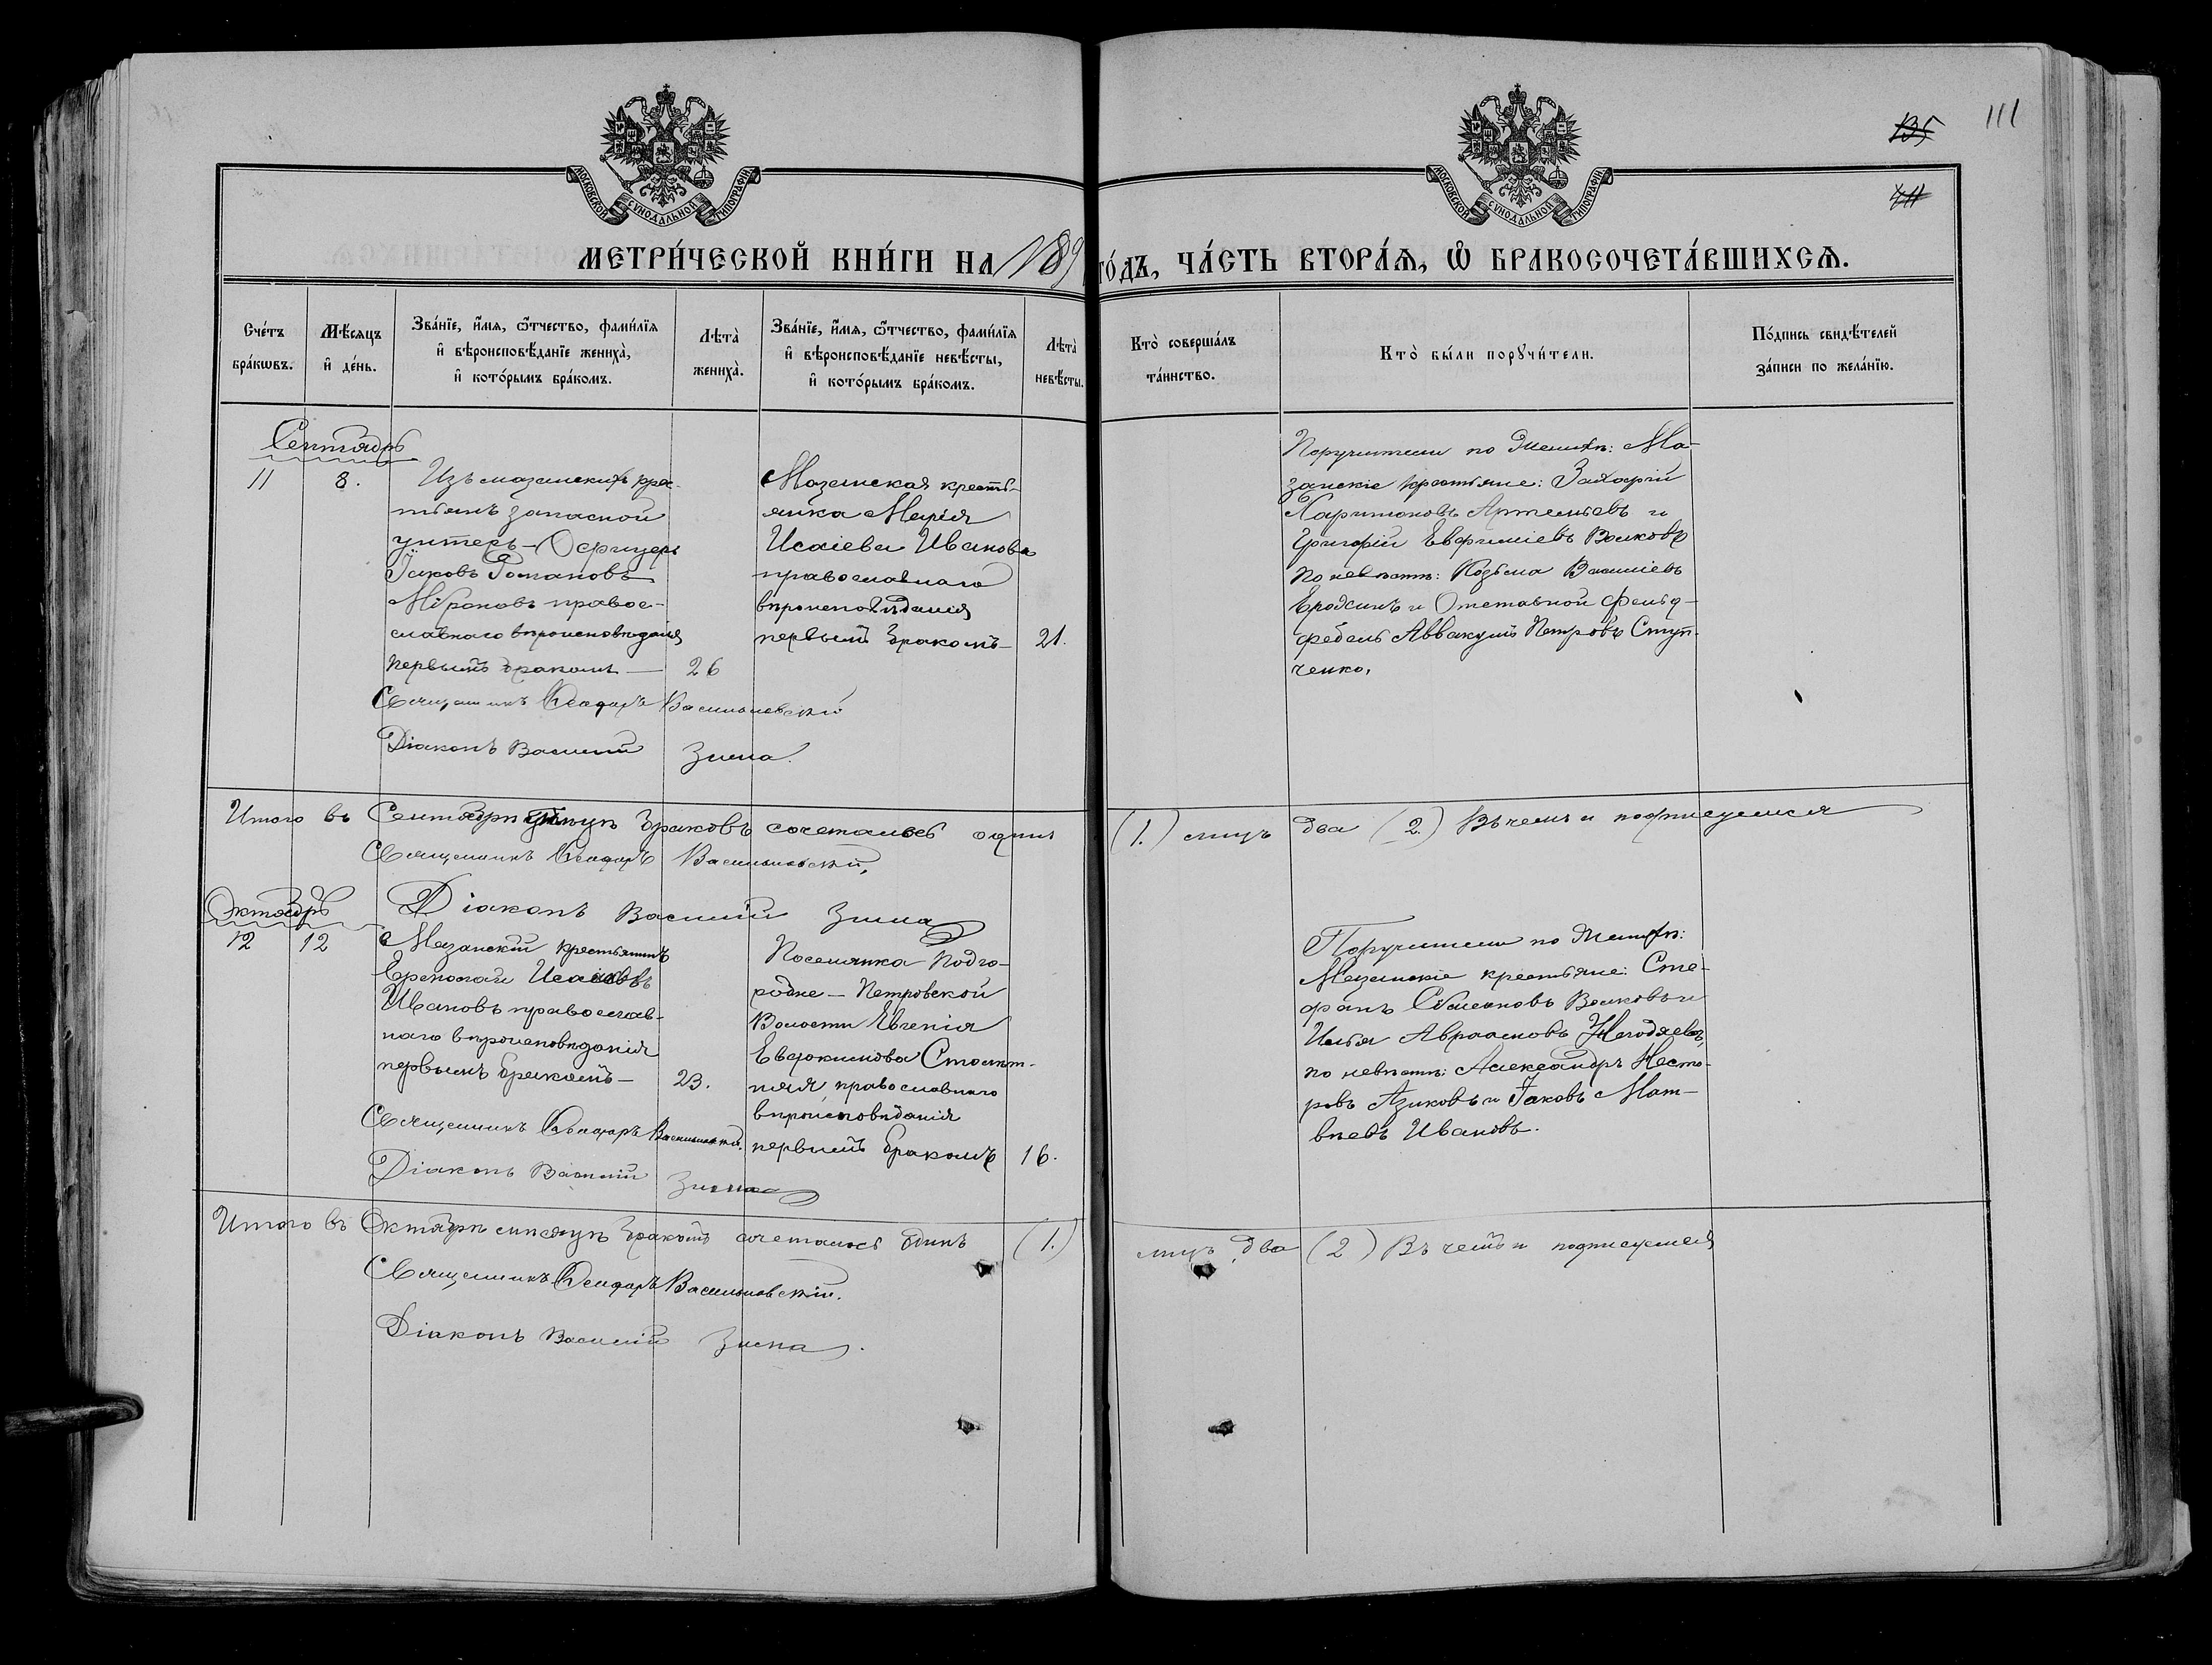 111
135
МОСКОВСКОЙ СѴНОДАЛЬНОЙ ТИПОГРАФІИ
МОСКОВСКОЙ СѴНОДАЛЬНОЙ ТИПОГРАФІИ
МЕТРИ́ЧЕСКОЙ КНИ́ГИ НА 189
ГО́ДЪ, ЧА́СТЬ ВТОРА́Ѧ, Ѽ БРАКОСОЧЕТА́ВШИХСѦ.
Сче́тъ бра́кѡвъ.
Мѣ́сяцъ и҆ де́нь.
Зва́нїе, и҆́мя, ѻ҆́тчество, фами́лїя
и҆ вѣроисповѣ́данїе жениха̀,
и҆ кото́рымъ бра́комъ.
Лѣта̀ жениха̀.
Зва́нїе, и҆́мя, ѻ҆́тчество, фами́лїя
и҆ вѣроисповѣ́данїе невѣ́сты,
и҆ кото́рымъ бра́комъ.
Лѣта̀ невѣ́сты.
Кто̀ соверша́лъ та́инство.
Кто̀ бы́ли порꙋчи́тели.
По́дпись свидѣ́телей за́писи по жела́нїю.
Сентябрь
11
8.
Изъ мазанскихъ крес-
тьянъ запасной
унтеръ-Офицеръ
Іаковъ Романовъ
Мироновъ правос-
славнаго вѣроисповѣданія
первымъ бракомъ —
26
Мазанская кресть-
янка Марія
Исаіева Иванова
православнаго
вѣроисповѣданія
первымъ бракомъ —
21.
Поручители по Женихѣ: Ма-
занскіе крестьяне: Захарій
Харитоновъ Артемьевъ и
Григорій Евфиміевъ Волковъ
по невѣстѣ: Козьма Василіевъ
Ерохинъ и Отставной Фельд-
фебель Аввакумъ Петровъ Ступ-
ченко.
Священникъ Васильковскій
Діаконъ Василій Зима.
Итого въ Сентябрѣ браковъ сочеталось одинъ (1.) лицъ два (2.) Въ чемъ и подписуемся
Священникъ Васильковскій,
Діаконъ Василій Зима
Октябрь
12
12
Мазанскій крестьянинъ
Ермолай Исаіевъ
Ивановъ православ-
наго вѣроисповѣданія
первымъ бракомъ —
23.
Поселянка Подго-
родне-Петровской
Волости Евгенія
Евдокимова Столѣт-
няя православнаго
вѣроисповѣданія
первымъ бракомъ
16.
Поручители по Женихѣ:
Мазанскіе крестьяне: Сте-
фанъ Симеоновъ Волковъ и
Илья Авраамовъ Негодяевъ,
по невѣстѣ: Александръ Несто-
ровъ Азиковъ и Іаковъ Мат-
вѣевъ Ивановъ.
Священникъ Васильковскій.
Діаконъ Василій Зима
Итого въ Октябрѣ мѣсяцѣ браковъ сочеталось одинъ (1.) лицъ два (2) Въ чемъ и подписуемся
Священникъ Васильковскій.
Діаконъ Василій Зима.